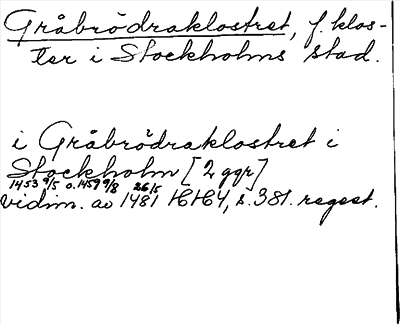 Gråbrödraklostret, f. klos-
ter i Stockholms stad.
i Gråbrödraklostret i
Stockholm [2 ggr]
1453 9/5 o. 1459 9/8 26/5
vidim. av 1481 HH 4, s. 381. regest.